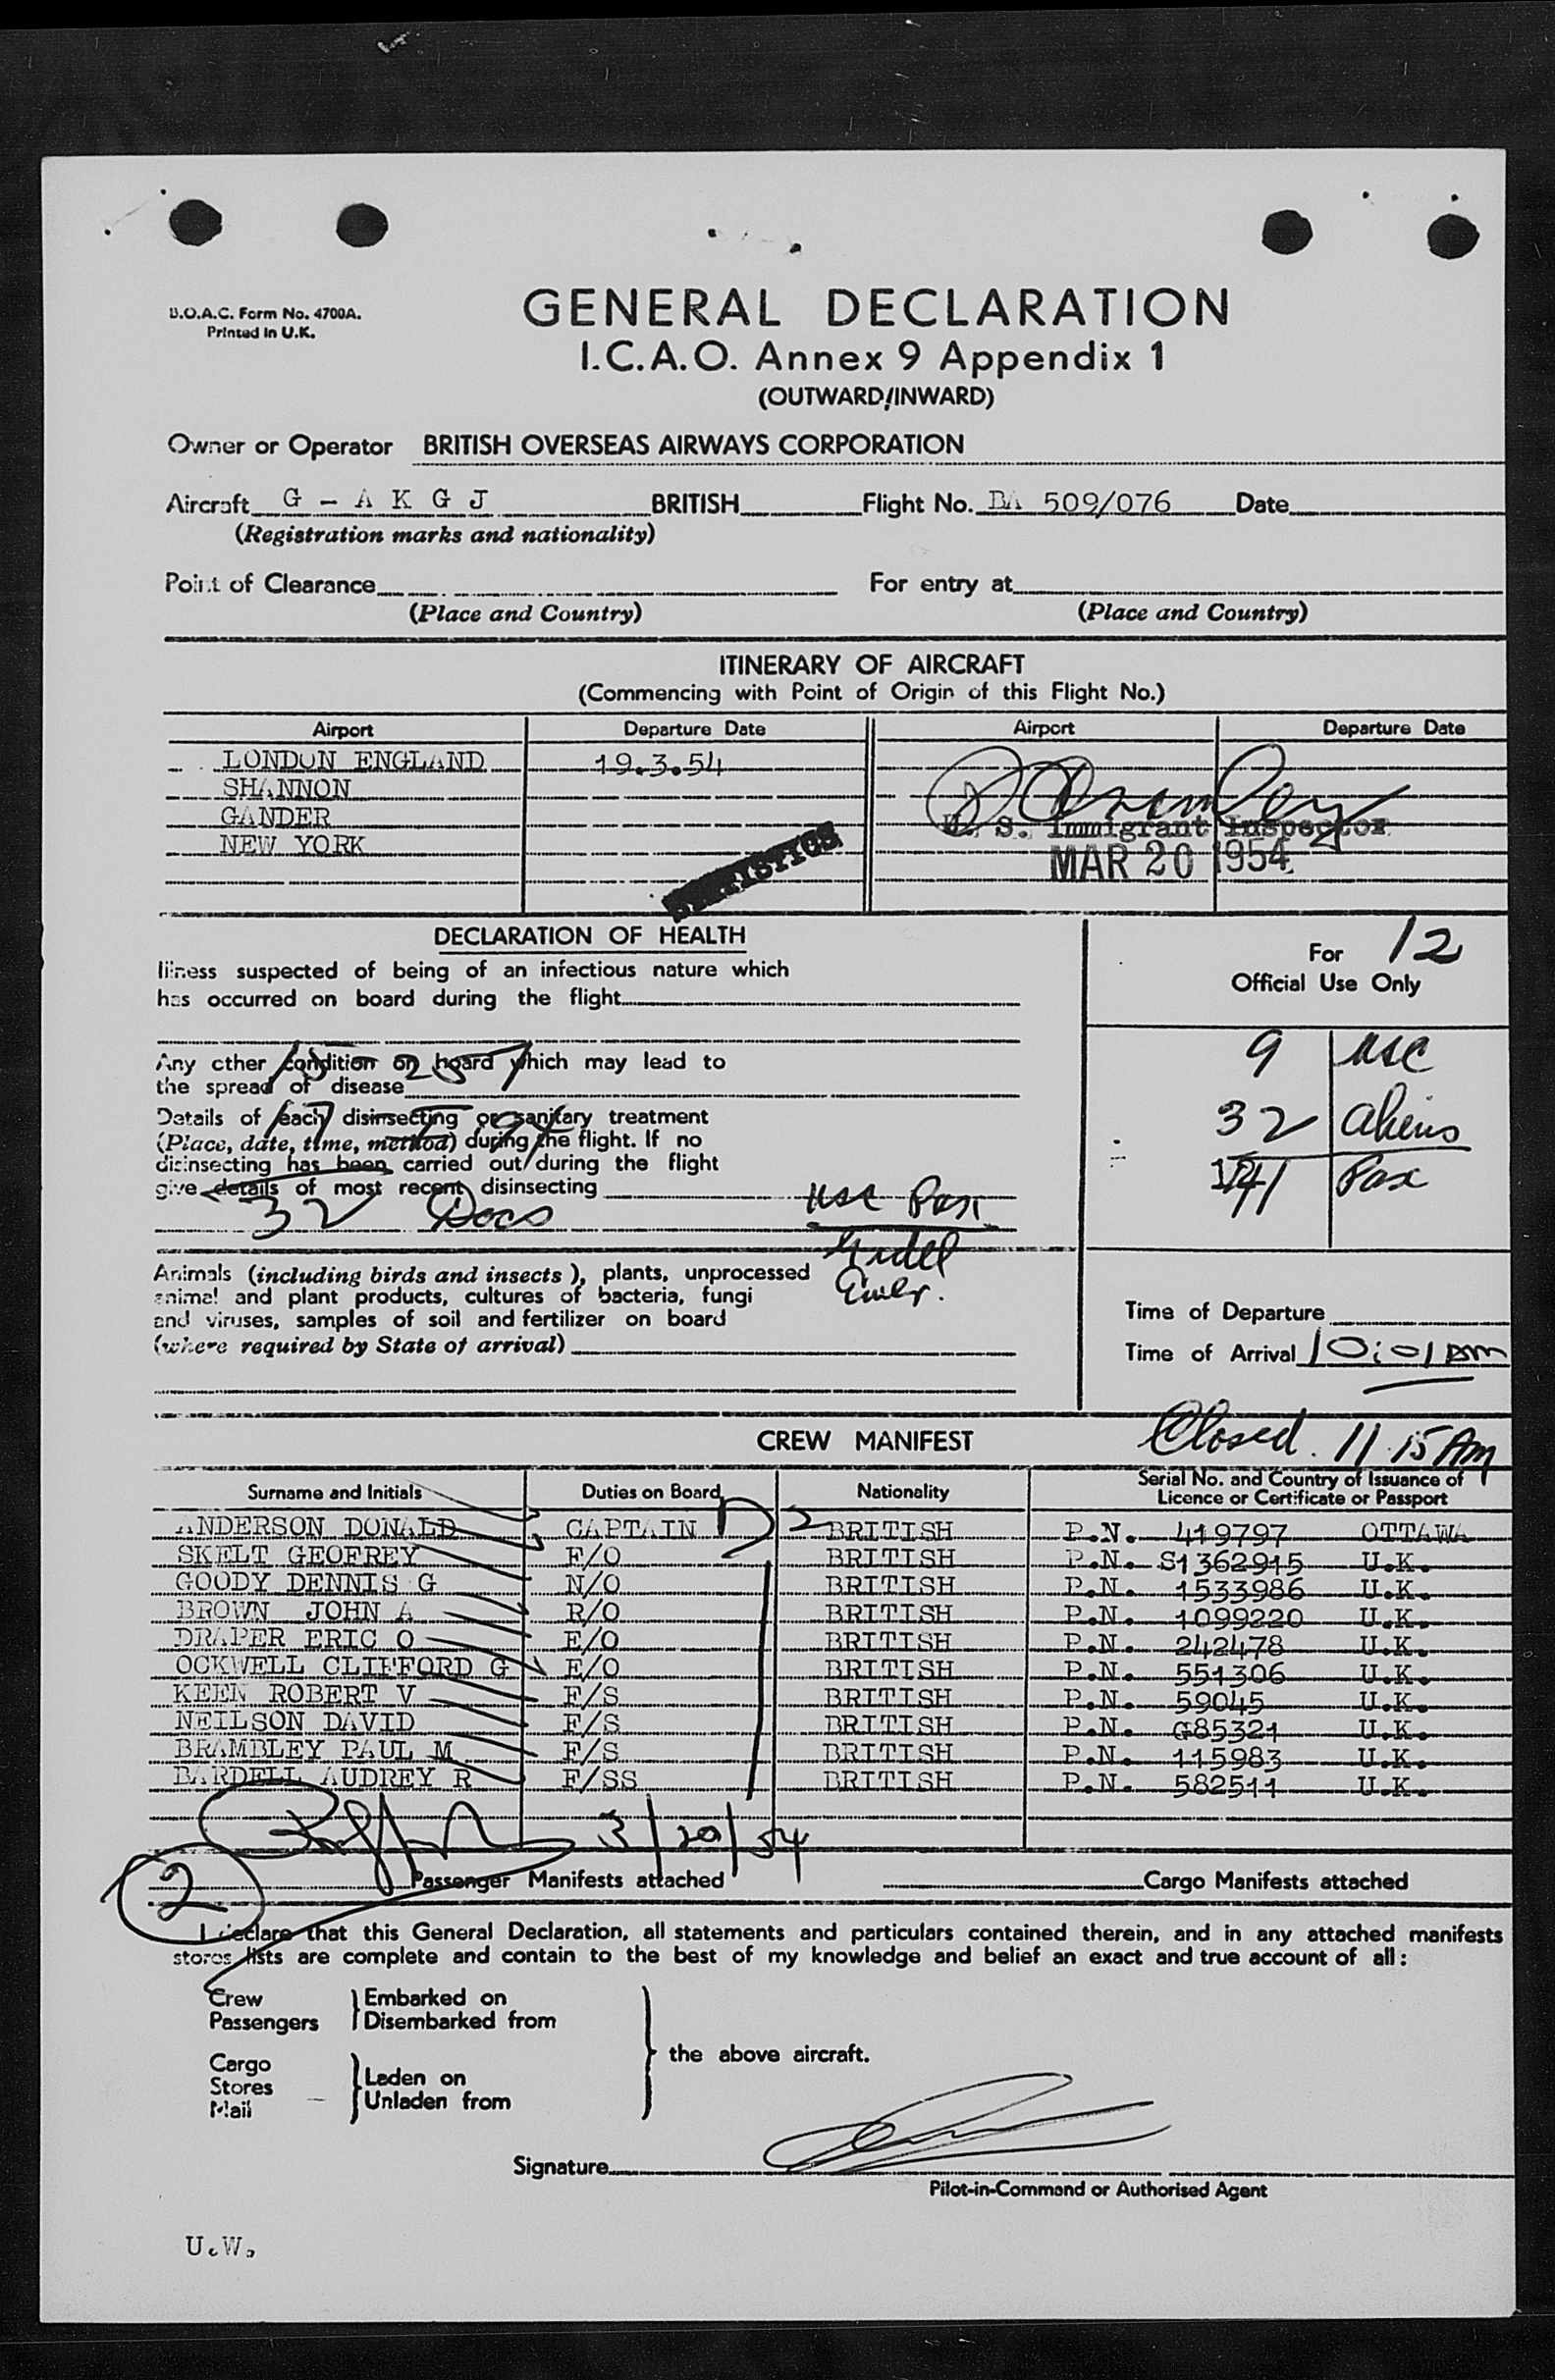 B.O.A.C. Form No. 4700A.
Printed in U.K.
GENERAL DECLARATION
I.C.A.O. Annex 9 Appendix 1
(OUTWARD/INWARD)
Owner or Operator BRITISH OVERSEAS AIRWAYS CORPORATION
Aircraft G - A K G J BRITISH Flight No. BA 509/076 Date
(Registration marks and nationality)
Point of Clearance For entry at
(Place and Country) (Place and Country)
ITINERARY OF AIRCRAFT
(Commencing with Point of Origin of this Flight No.)
Airport Departure Date Airport Departure Date
LONDON ENGLAND 19.3.54
SHANNON
GANDER
NEW YORK
U. S. Immigrant Inspector
MAR 20 1954
STATISTICS
DECLARATION OF HEALTH
For 12
Official Use Only
Illness suspected of being of an infectious nature which
has occurred on board during the flight
9 USC
Any other condition on board which may lead to
the spread of disease
32 Aliens
Details of each disinsecting or sanitary treatment
(Place, date, time, method) during the flight. If no
disinsecting has been carried out during the flight
give details of most recent disinsecting
41 Pax
32 Docs USC Pax
Animals (including birds and insects), plants, unprocessed
animal and plant products, cultures of bacteria, fungi
and viruses, samples of soil and fertilizer on board
(where required by State of arrival)
Time of Departure
Time of Arrival 10:01 am
Closed 11.15 Am
CREW MANIFEST
Surname and Initials Duties on Board Nationality Serial No. and Country of Issuance of
Licence or Certificate or Passport
ANDERSON DONALD CAPTAIN D 2 BRITISH P.N. 419797 OTTAWA
SKELT GEOFREY F/O BRITISH P.N. S1362915 U.K.
GOODY DENNIS G N/O BRITISH P.N. 1533986 U.K.
BROWN JOHN A R/O BRITISH P.N. 1099220 U.K.
DRAPER ERIC O E/O BRITISH P.N. 242478 U.K.
OCKWELL CLIFFORD G E/O BRITISH P.N. 551306 U.K.
KEEN ROBERT V F/S BRITISH P.N. 59045 U.K.
NEILSON DAVID F/S BRITISH P.N. G85321 U.K.
BRAMBLEY PAUL M F/S BRITISH P.N. 115983 U.K.
BARDELL AUDREY R F/SS BRITISH P.N. 582511 U.K.
3/20/54
2 Passenger Manifests attached Cargo Manifests attached
I declare that this General Declaration, all statements and particulars contained therein, and in any attached manifests
stores lists are complete and contain to the best of my knowledge and belief an exact and true account of all:
Crew Embarked on
Passengers Disembarked from
the above aircraft.
Cargo
Stores Laden on
Mail Unladen from
Signature
Pilot-in-Command or Authorised Agent
U.W.